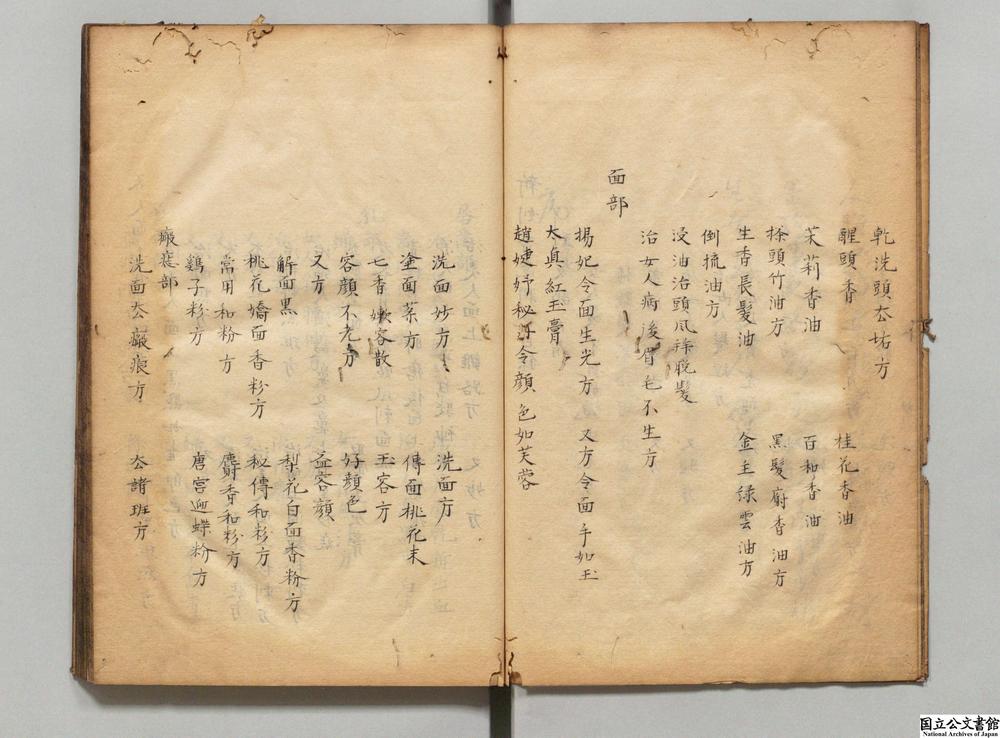 乾洗頭去垢方
醒頭香 桂花香油
茉莉香油 百和香油
搽頭竹油方 黑髮麝香油方
生香長髮油 金主綠雲油方
倒梳油方
浸油治頭風並脫髮
治女人病後眉毛不生方
面部
楊妃令面生光方 又方令面手如玉
太真紅玉膏
趙婕妤秘丹令顏色如芙蓉
洗面妙方 洗面方
塗面藥方 傅面桃花末
七香嫩容散 玉容方
容顏不老方 好顏色
又方 益容顏
解面黑 梨花白面香粉方
桃花嬌面香粉方 秘傳和粉方
常用和粉方 麝香和粉方
鷄子粉方 唐宮迎蝶粉方
瘢痣部
洗面去瘢痕方 去諸班方
国立公文書館
National Archives of Japan